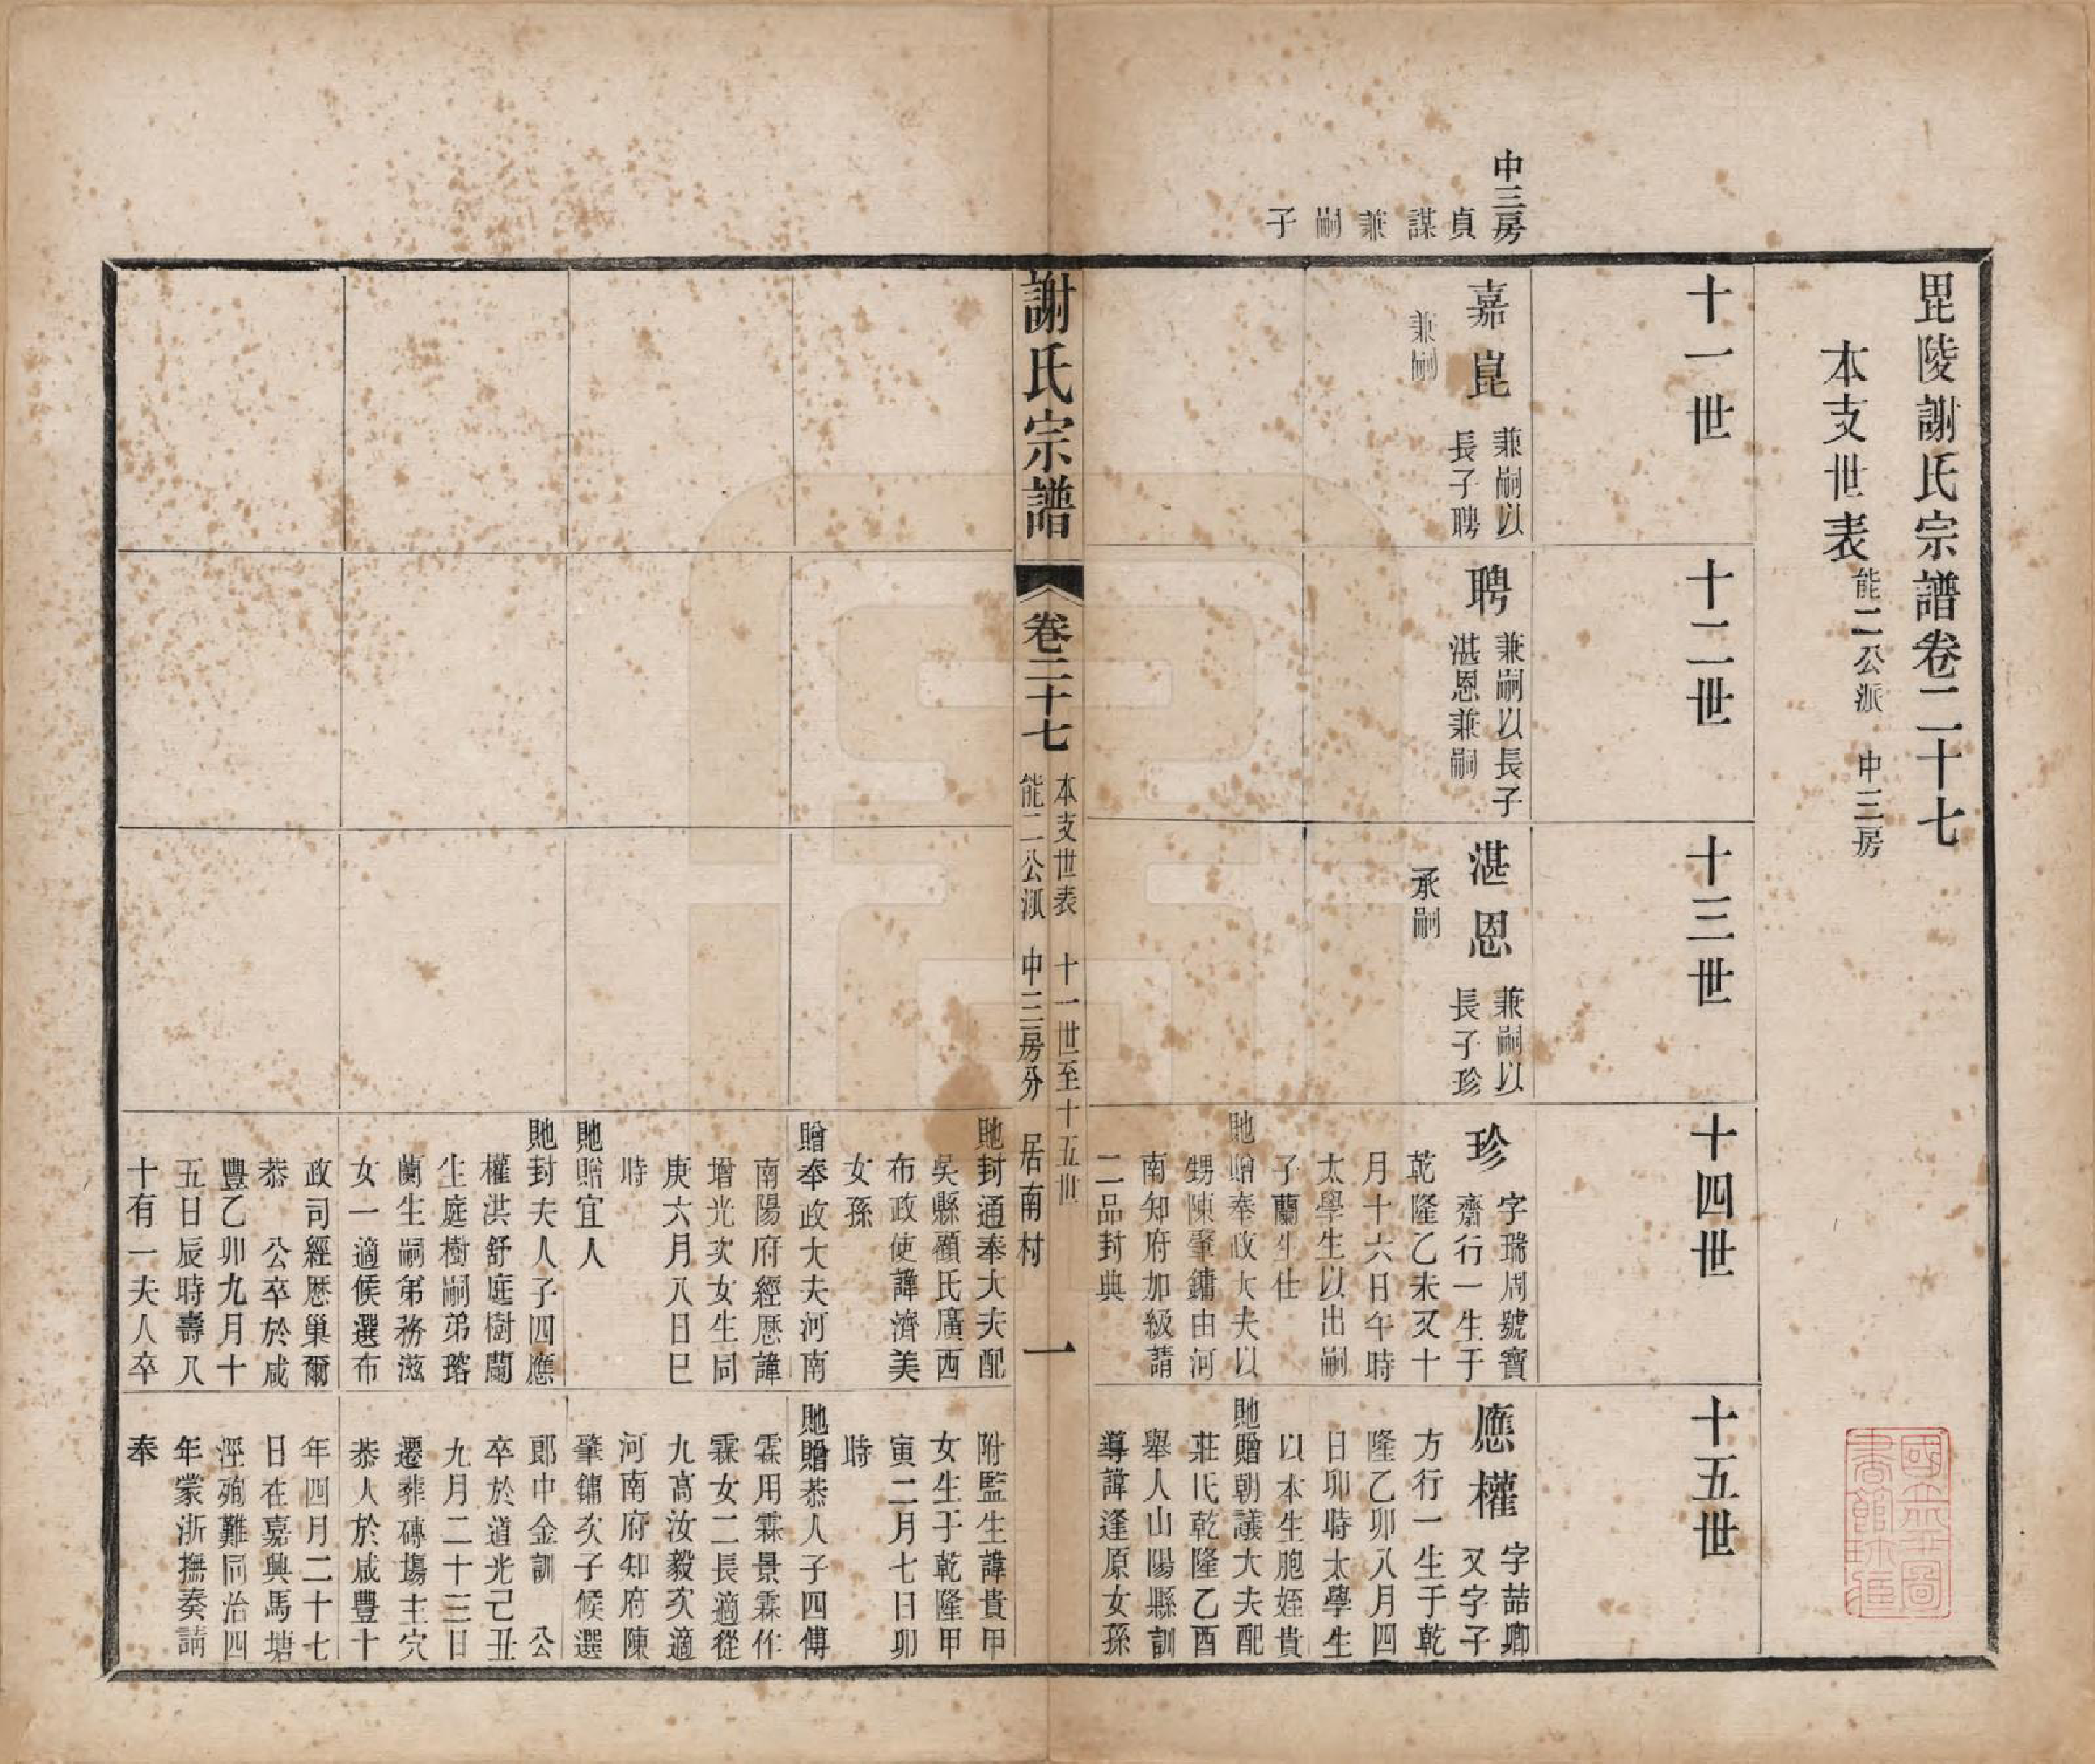 毘陵謝氏宗譜卷二十七
本支世表 能二公派 中三房
十一世
十二世
十三世
十四世
十五世
中三房
貞謀兼嗣子
嘉崑
兼嗣以
長子聘
兼嗣
聘
兼嗣以長子
湛恩兼嗣
湛恩
兼嗣以
長子珍
承嗣
珍
字瑞周號寶
齋行一生于
乾隆乙未又十
月十六日午時
太學生以出嗣
子蘭生仕
貤贈奉政大夫以
甥陳肇鏞由河
南知府加級請
二品封典
貤封通奉大夫配
吳縣顧氏廣西
布政使諱濟美
女孫
贈奉政大夫河南
南陽府經歷諱
增光次女生同
庚六月八日巳
時
貤贈宜人
貤封夫人子四應
權洪舒庭樹蘭
生庭樹嗣弟瑢
蘭生嗣弟務滋
女一適候選布
政司經歷巢爾
恭　公卒於咸
豐乙卯九月十
五日辰時壽八
十有一夫人卒
應權
字喆卿
又字子
方行一生于乾
隆乙卯八月四
日卯時太學生
以本生胞姪貴
貤贈朝議大夫配
莊氏乾隆乙酉
舉人山陽縣訓
導諱逢原女孫
附監生諱貴甲
女生于乾隆甲
寅二月七日卯
時
貤贈恭人子四傅
霖用霖景霖作
霖女二長適從
九高汝毅次適
河南府知府陳
肇鏞次子候選
郎中金訓　公
卒於道光己丑
九月二十三日
遷葬磚塲主穴
恭人於咸豐十
年四月二十七
日在嘉興馬塘
涇殉難同治四
年蒙浙撫奏請
奉
謝氏宗譜
卷二十七
本支世表　十一世至十五世
能二公派　中三房分　居南村
一
國立北平圖
書館珍藏